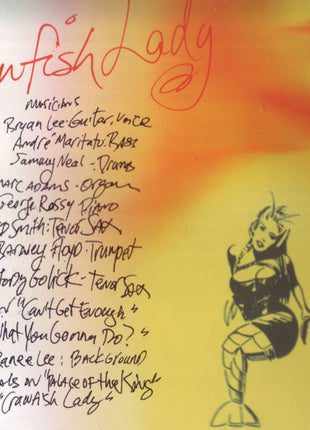 wfish Lady
Musicians
Bryan Lee: Guitar, Voice
André Maritato: Bass
Sammy Neal - Drums
Marc Adams - Organ
George Rossy Piano
Smith: Tenor Sax
Barney Floyd - Trumpet
Jody Golick - Tenor Sax
"Can't Get Enough"
What You Gonna Do?"
Ranee Lee: Background
als on "Palace of the King"
"Crawfish Lady"